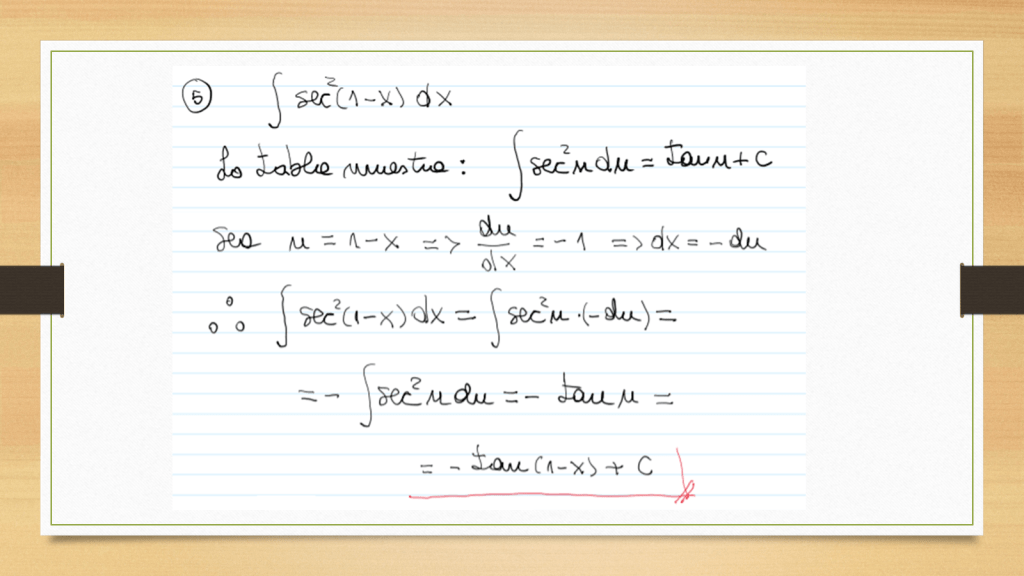 ⑤ ∫ sec²(1-x) dx
La tabla muestra: ∫ sec²u du = tan u + c
Sea u = 1-x => du/dx = -1 => dx = -du
∴ ∫ sec²(1-x) dx = ∫ sec²u · (-du) =
= - ∫ sec²u du = - tan u =
= - tan (1-x) + C